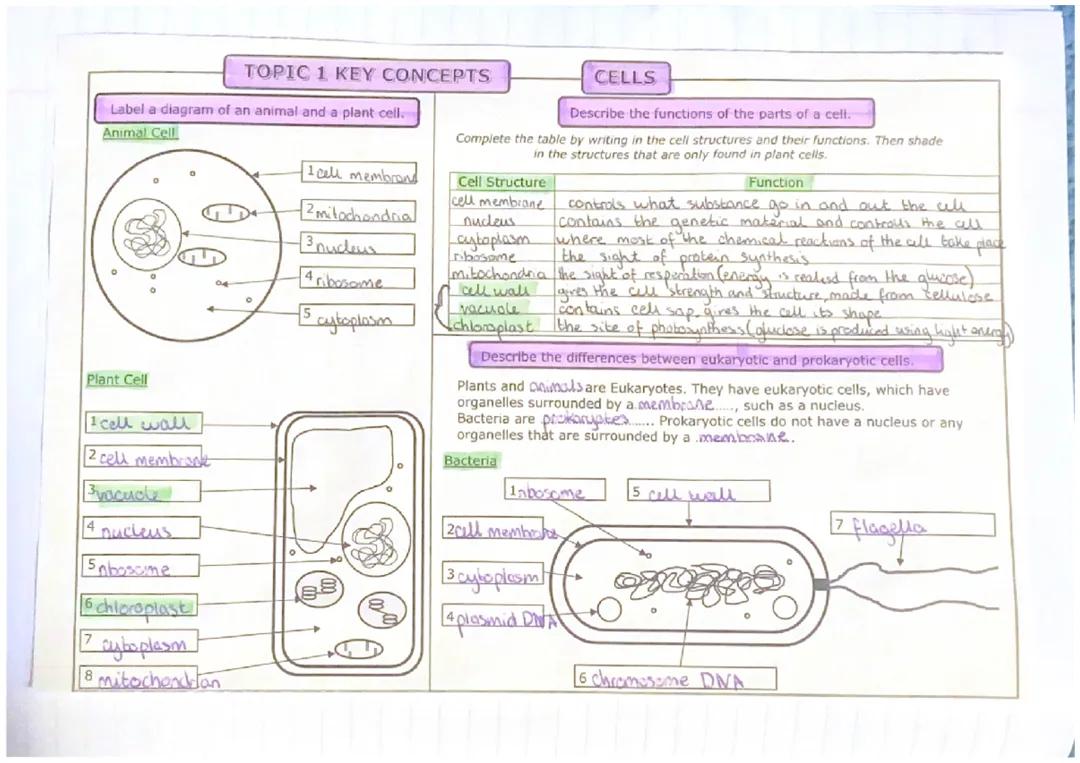 TOPIC 1 KEY CONCEPTS
CELLS
Label a diagram of an animal and a plant cell.
Animal Cell
1 cell membrane
2 mitochondria
3 nucleus
4 ribosome
5 cytoplasm
Plant Cell
1 cell wall
2 cell membrane
3 vacuole
4 nucleus
5 ribosome
6 chloroplast
7 cytoplasm
8 mitochondrian
Describe the functions of the parts of a cell.
Complete the table by writing in the cell structures and their functions. Then shade
in the structures that are only found in plant cells.
Cell Structure Function
cell membrane controls what substance go in and out the cell
nucleus contains the genetic material and controlls the cell
cytoplasm where most of the chemical reactions of the cell take place
ribosome the sight of protein synthesis
mitochondria the sight of resperation (energy is realisd from the glucose)
cell wall gives the cell strength and structure, made from cellulose
vacuole contains cell sap, gives the cell its shape
chloroplast the site of photosynthesis (gluclose is produced using light energy)
Describe the differences between eukaryotic and prokaryotic cells.
Plants and animals are Eukaryotes. They have eukaryotic cells, which have
organelles surrounded by a membrane....., such as a nucleus.
Bacteria are prokaryotes...... Prokaryotic cells do not have a nucleus or any
organelles that are surrounded by a .membrane.
Bacteria
1 ribosome
5 cell wall
2 cell membrane
7 flagella
3 cytoplasm
4 plasmid DNA
6 chromosome DNA